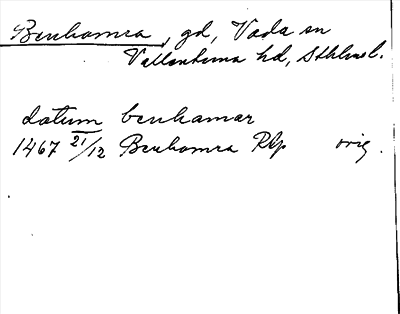 Benhamra, gd, Vada sn
Vallentuna hd, Sthlmsl.
datum benhamar
1467 21/12 Benhamra RAp orig.